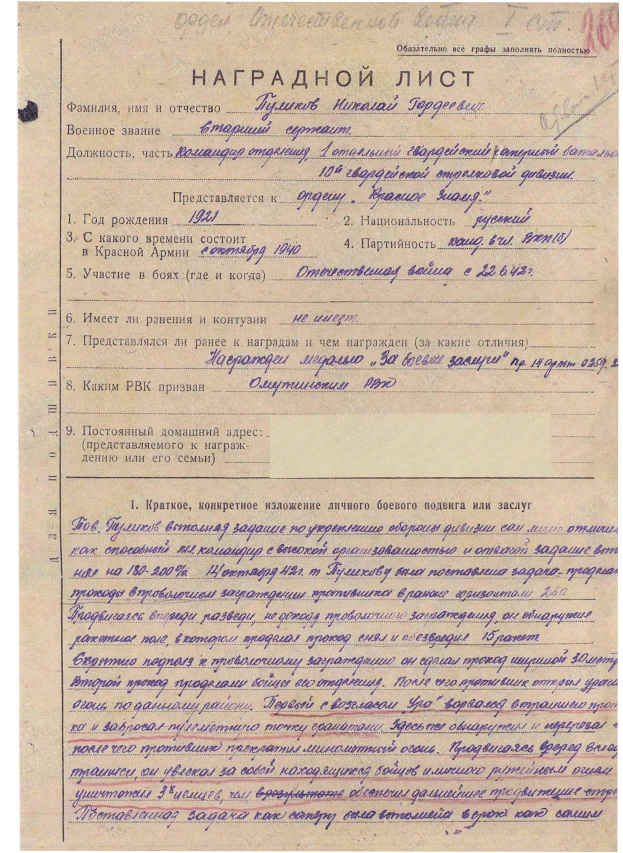 орден Отечественной войны I ст.
Обязательно все графы заполнять полностью
НАГРАДНОЙ ЛИСТ
Фамилия, имя и отчество Пуликов Николай Гордеевич
Военное звание Старший сержант
Должность, часть Командир отделения, 1 отдельный гвардейский саперный батальо
10й гвардейской стрелковой дивизии
Представляется к ордену „Красное Знамя."
1. Год рождения 1921
2. Национальность русский
3. С какого времени состоит в Красной Армии с октября 1940
4. Партийность канд. в чл. ВКП(б)
5. Участие в боях (где и когда) Отечественная война с 22 6 42г.
6. Имеет ли ранения и контузии не имеет
7. Представлялся ли ранее к наградам и чем награжден (за какие отличия)
Награжден медалью „За боевые заслуги" пр. 14 арм
8. Каким РВК призван Омутинским РВК
9. Постоянный домашний адрес:
(представляемого к награж-
дению или его семьи)
для подшивки
1. Краткое, конкретное изложение личного боевого подвига или заслуг
Тов. Пуликов выполняя задание по укреплению обороны дивизии сам лично отличи
как способный мл. командир с высокой организованностью и отвагой задание вып
нял на 180-200% 14 октября 42 г. т Пуликову была поставлена задача-продела
проходы в проволочном заграждении противника в районе горизонтали 260
Продвигаясь впереди разведки, не доходя проволочного заграждения, он обнаружил
ракетное поле, в котором проделал проход снял и обезвредил 15 ракет
Скрытно подполз к проволочному заграждению он сделал проход шириной 30 метр
Второй проход проделали бойцы его отделения. После чего противник открыл
огонь по данному району. Первый с возгласом „Ура" ворвался в траншею прот
ка и забросал пулеметную точку гранатами. Здесь же обнаружил и перерезал
после чего противник прекратил минометный огонь. Продвигаясь вперед
траншеи, он увлекал за собой находящихся бойцов и личного ружейным огнем
уничтожил 3х немцев, чем обеспечил дальнейшее продвижение
Поставленная задача как саперу была выполнена в срок как самим